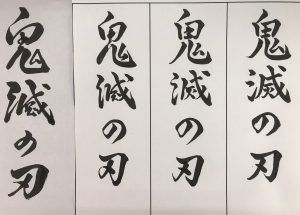 鬼滅の刃
鬼滅の刃
鬼滅の刃
鬼滅の刃